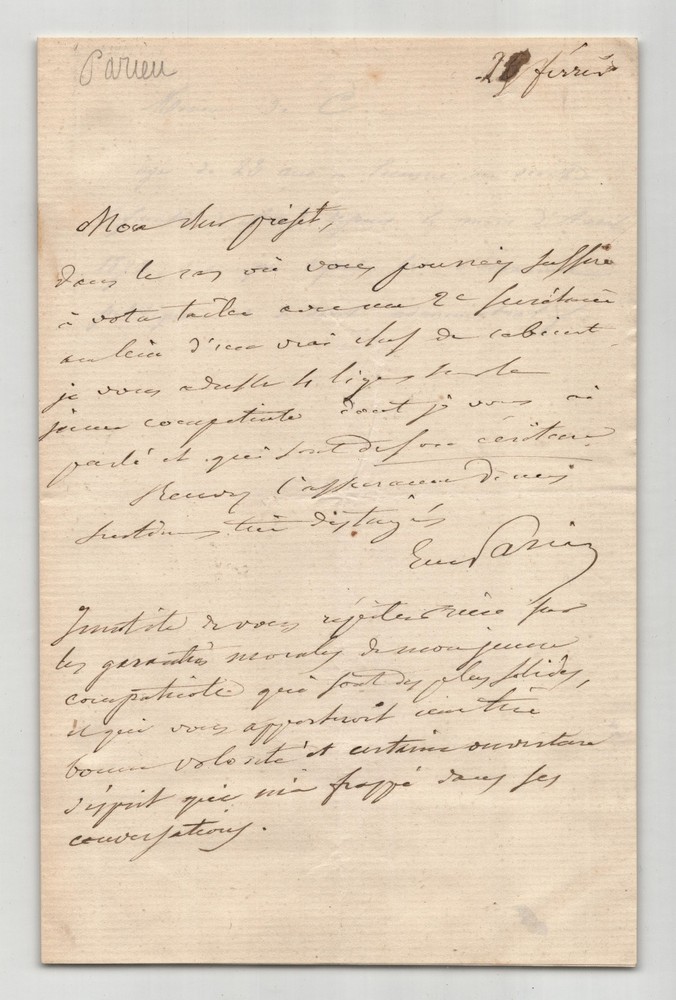 Parieu
28 février
Mon cher préfet,
Dans le cas où vous pourriez suffire
à votre tâche avec un 2e secrétaire
au lieu d'un vrai chef de cabinet
je vous adresse 4 lignes sur le
jeune compatriote dont je vous ai
parlé et qui sont de son écriture
Recevez l'assurance de mes
sentimens très distingués
E. de Parieu
Inutile de vous répéter rien sur
les garanties morales de mon jeune
compatriote qui sont des plus solides,
et qui vous apporteroit une très
bonne volonté et certaine ouverture
d'esprit qui m'a frappé dans ses
conversations.